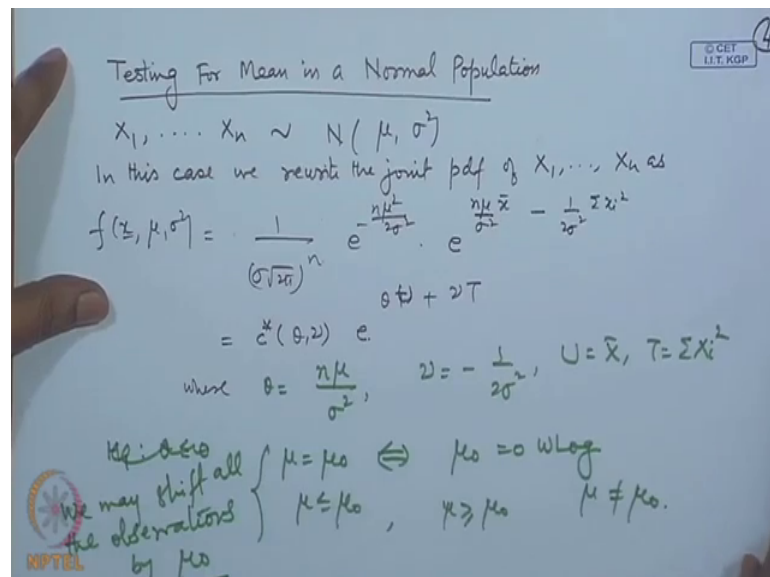 4
© CET
I.I.T. KGP
Testing For Mean in a Normal Population
X₁, .... Xₙ ~ N( μ, σ²)
In this case we rewrite the joint pdf of X₁, ..., Xₙ as
f(x, μ, σ²) = 1/(σ√2π)ⁿ e^(-nμ²/2σ²) · e^(nμ/σ² x̄ - 1/2σ² Σxi²)
= c*(θ,ν) e^(θU + νT)
where θ = nμ/σ², ν = - 1/2σ², U = X̄, T = ΣXi²
We may shift all
the observations
by μ₀
μ = μ₀ ⇔ μ₀ = 0 WLog
μ ≤ μ₀ , μ ≥ μ₀ μ ≠ μ₀.
NPTEL